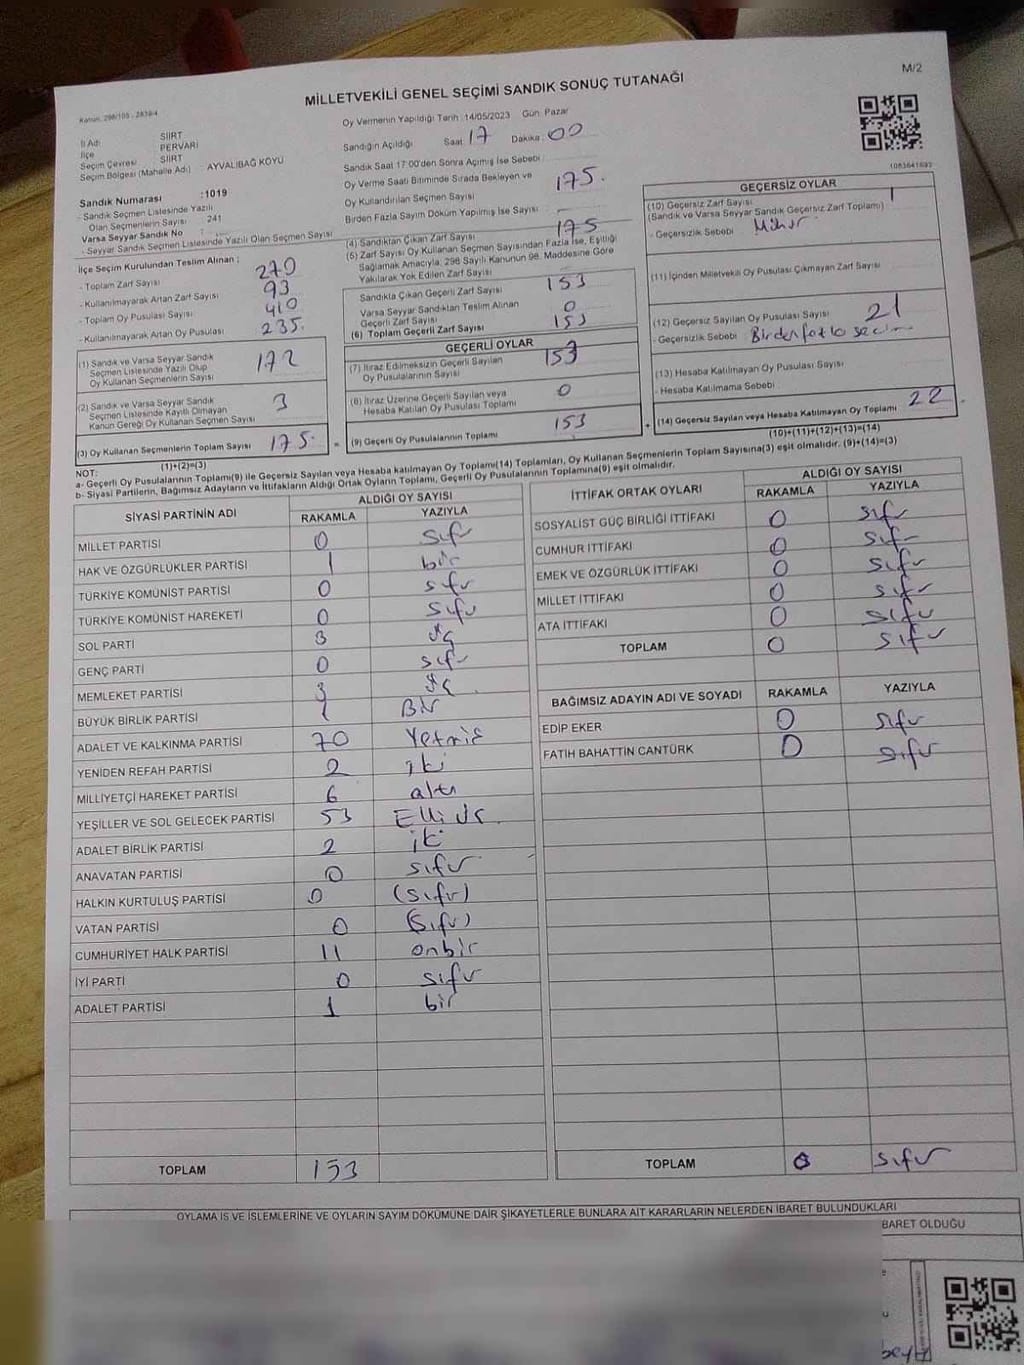 M/2
MİLLETVEKİLİ GENEL SEÇİMİ SANDIK SONUÇ TUTANAĞI
Kanun: 298/105 - 2839/4
Oy Vermenin Yapıldığı Tarih :14/05/2023 Gün: Pazar
İl Adı SİİRT
İlçe PERVARİ
Seçim Çevresi SİİRT
Seçim Bölgesi (Mahalle Adı) AYVALIBAĞ KÖYÜ
Sandık Numarası :1019
- Sandık Seçmen Listesinde Yazılı
Olan Seçmenlerin Sayısı 241
Varsa Seyyar Sandık No :
- Seyyar Sandık Seçmen Listesinde Yazılı Olan Seçmen Sayısı
Sandığın Açıldığı Saat 17 Dakika: 00
Sandık Saat 17:00'den Sonra Açımış İse Sebebi
Oy Verme Saati Bitiminde Sırada Bekleyen ve
Oy Kullandırılan Seçmen Sayısı 175.
Birden Fazla Sayım Döküm Yapılmış İse Sayısı
(4) Sandıktan Çıkan Zarf Sayısı 175
(5) Zarf Sayısı Oy Kullanan Seçmen Sayısından Fazla İse, Eşitliği
Sağlamak Amacıyla, 298 Sayılı Kanunun 98. Maddesine Göre
Yakılarak Yok Edilen Zarf Sayısı
1083641693
İlçe Seçim Kurulundan Teslim Alınan ;
- Toplam Zarf Sayısı 270
- Kullanılmayarak Artan Zarf Sayısı 93
- Toplam Oy Pusulası Sayısı 410
- Kullanılmayarak Artan Oy Pusulası 235.
(1) Sandık ve Varsa Seyyar Sandık
Seçmen Listesinde Yazılı Olup
Oy Kullanan Seçmenlerin Sayısı 172
(2) Sandık ve Varsa Seyyar Sandık
Seçmen Listesinde Kayıtlı Olmayan
Kanun Gereği Oy Kullanan Seçmen Sayısı 3
(3) Oy Kullanan Seçmenlerin Toplam Sayısı 175.
(1)+(2)=(3)
Sandıkta Çıkan Geçerli Zarf Sayısı 153
Varsa Seyyar Sandıktan Teslim Alınan
Geçerli Zarf Sayısı 0
(6) Toplam Geçerli Zarf Sayısı 153
GEÇERLİ OYLAR
(7) İtiraz Edilmeksizin Geçerli Sayılan
Oy Pusulalarının Sayısı 153
(8) İtiraz Üzerine Geçerli Sayılan veya
Hesaba Katılan Oy Pusulası Toplamı 0
= (9) Geçerli Oy Pusulalarının Toplamı 153 +
GEÇERSİZ OYLAR
(10) Geçersiz Zarf Sayısı 1
(Sandık ve Varsa Seyyar Sandık Geçersiz Zarf Toplamı)
- Geçersizlik Sebebi Mühür
(11) İçinden Milletvekili Oy Pusulası Çıkmayan Zarf Sayısı
(12) Geçersiz Sayılan Oy Pusulası Sayısı 21
- Geçersizlik Sebebi Birden fazla seçim
(13) Hesaba Katılmayan Oy Pusulası Sayısı
- Hesaba Katılmama Sebebi
(14) Geçersiz Sayılan veya Hesaba Katılmayan Oy Toplamı 22
(10)+(11)+(12)+(13)=(14)
NOT:
a- Geçerli Oy Pusulalarının Toplamı(9) ile Geçersiz Sayılan veya Hesaba katılmayan Oy Toplamı(14) Toplamları, Oy Kullanan Seçmenlerin Toplam Sayısına(3) eşit olmalıdır. (9)+(14)=(3)
b- Siyasi Partilerin, Bağımsız Adayların ve İttifakların Aldığı Ortak Oyların Toplamı, Geçerli Oy Pusulalarının Toplamına(9) eşit olmalıdır.
SİYASİ PARTİNİN ADI ALDIĞI OY SAYISI
RAKAMLA YAZIYLA
MİLLET PARTİSİ 0 sıfır
HAK VE ÖZGÜRLÜKLER PARTİSİ 1 bir
TÜRKİYE KOMÜNİST PARTİSİ 0 sıfır
TÜRKİYE KOMÜNİST HAREKETİ 0 sıfır
SOL PARTİ 3 üç
GENÇ PARTİ 0 sıfır
MEMLEKET PARTİSİ 3 üç
BÜYÜK BİRLİK PARTİSİ 1 Bir
ADALET VE KALKINMA PARTİSİ 70 Yetmiş
YENİDEN REFAH PARTİSİ 2 iki
MİLLİYETÇİ HAREKET PARTİSİ 6 altı
YEŞİLLER VE SOL GELECEK PARTİSİ 53 Elli üç.
ADALET BİRLİK PARTİSİ 2 iki
ANAVATAN PARTİSİ 0 sıfır
HALKIN KURTULUŞ PARTİSİ 0 (sıfır)
VATAN PARTİSİ 0 (sıfır)
CUMHURİYET HALK PARTİSİ 11 onbir
İYİ PARTİ 0 sıfır
ADALET PARTİSİ 1 bir
TOPLAM 153
İTTİFAK ORTAK OYLARI ALDIĞI OY SAYISI
RAKAMLA YAZIYLA
SOSYALİST GÜÇ BİRLİĞİ İTTİFAKI 0 sıfır
CUMHUR İTTİFAKI 0 sıfır
EMEK VE ÖZGÜRLÜK İTTİFAKI 0 sıfır
MİLLET İTTİFAKI 0 sıfır
ATA İTTİFAKI 0 sıfır
TOPLAM 0 sıfır
BAĞIMSIZ ADAYIN ADI VE SOYADI RAKAMLA YAZIYLA
EDİP EKER 0 sıfır
FATİH BAHATTİN CANTÜRK 0 sıfır
TOPLAM 0 sıfır
OYLAMA İŞ VE İŞLEMLERİNE VE OYLARIN SAYIM DÖKÜMÜNE DAİR ŞİKAYETLERLE BUNLARA AİT KARARLARIN NELERDEN İBARET BULUNDUKLARI
BARET OLDUĞU